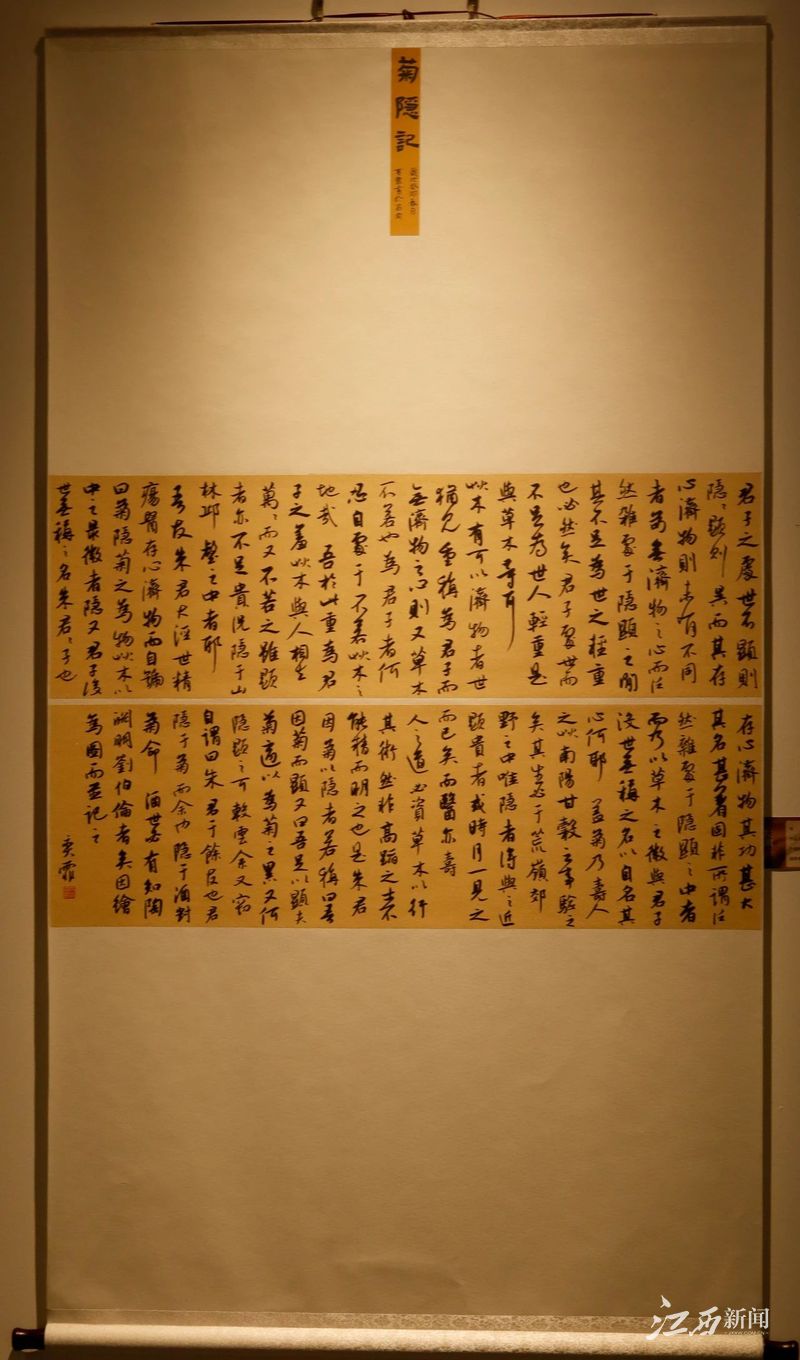 菊隱記
君子之處世不顯則
隱隱顯則異而其存
心濟物則未有不同
者苟無濟物之心而泛
然雜處于隱顯之間
其不足為世之輕重
也必然矣君子處世而
不足為世人輕重是
與草木等耳
艸木有可以濟物者世
猶見重稱為君子而
無濟物之心則又草木
不若也為君子者何
忍自處于不若艸木之
地哉吾於此重為君
子之羞艸木與人相去
萬萬而又不若之雖顯
者亦不足貴況隱于山
林邱壑之中者耶
吾友朱君大涇世精
瘍醫存心濟物而自號
曰菊隱菊之為物艸木
中之最微者隱又君子沒
世無稱之名朱君君子也
存心濟物其功甚大
其名甚著固非所謂泛
然雜處于隱顯之中者
而乃以草木之微與君子
沒世無稱之名以自名其
心何耶蓋菊乃壽人
之艸南陽甘穀之事驗之
矣其生必于荒嶺郊
野之中唯隱者得與之近
顯貴者或時月一見之
而已矣而醫亦壽
人之道必資草木以行
其術然非高蹈之士不
能精而明之也是朱君
因菊以隱者若稱曰吾
因菊而顯又曰吾足以顯夫
菊適以為菊之累又何
隱顯之可較雲余又竊
自謂曰朱君于餘友也君
隱于菊而余也隱于酒對
菊命酒世必有知陶
淵明劉伯倫者矣因繪
為圖而並記之
江西新闻